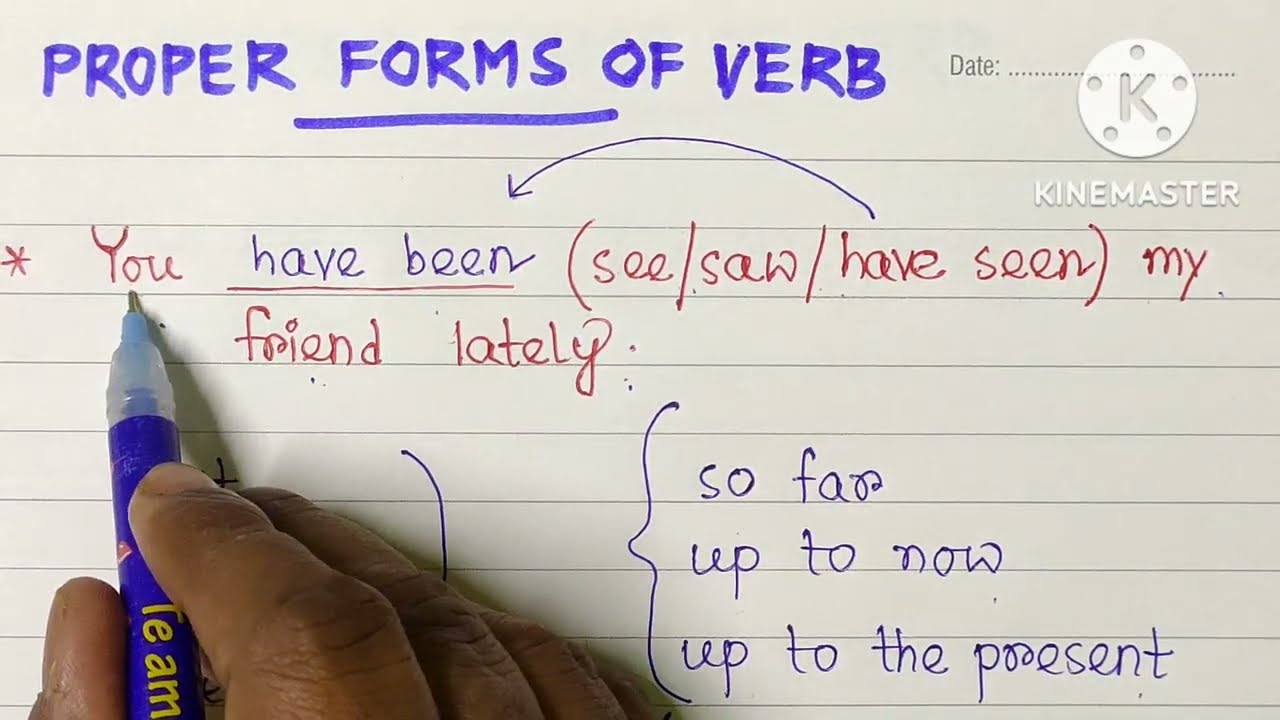 PROPER FORMS OF VERB
Date:
K
KINEMASTER
* You have been (see/saw/have seen) my
friend lately.
so far
up to now
up to the present
Te am